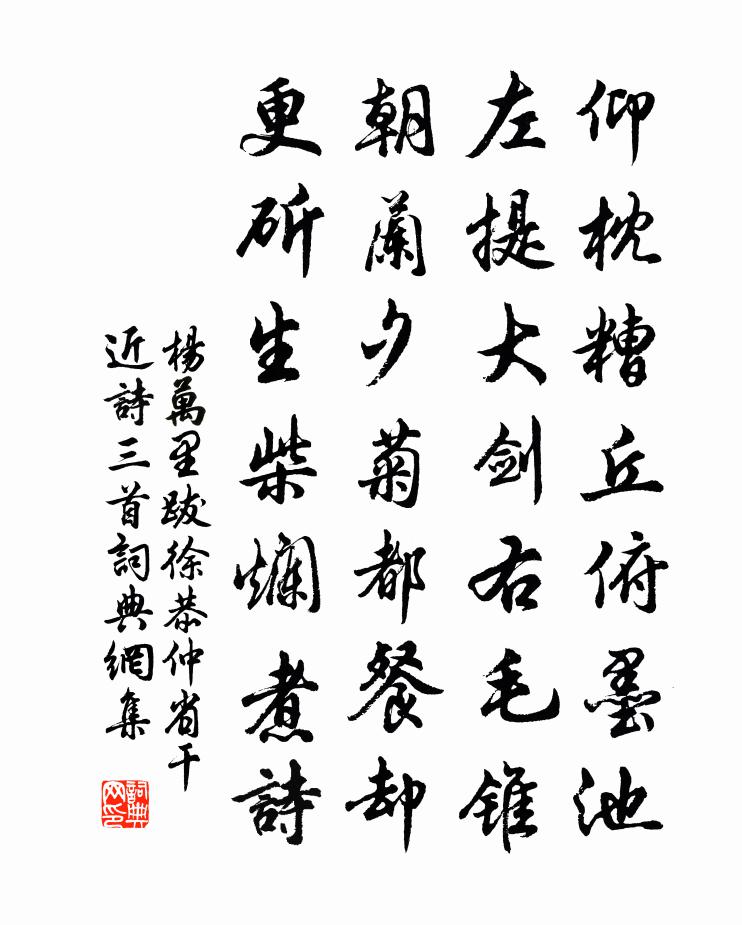 仰枕糟丘俯墨池
左提大剑右毛锥
朝蘭夕菊都餐却
更斫生柴爛煮詩
楊萬里跋徐恭仲省干
近詩三首詞典網集
詞典网印